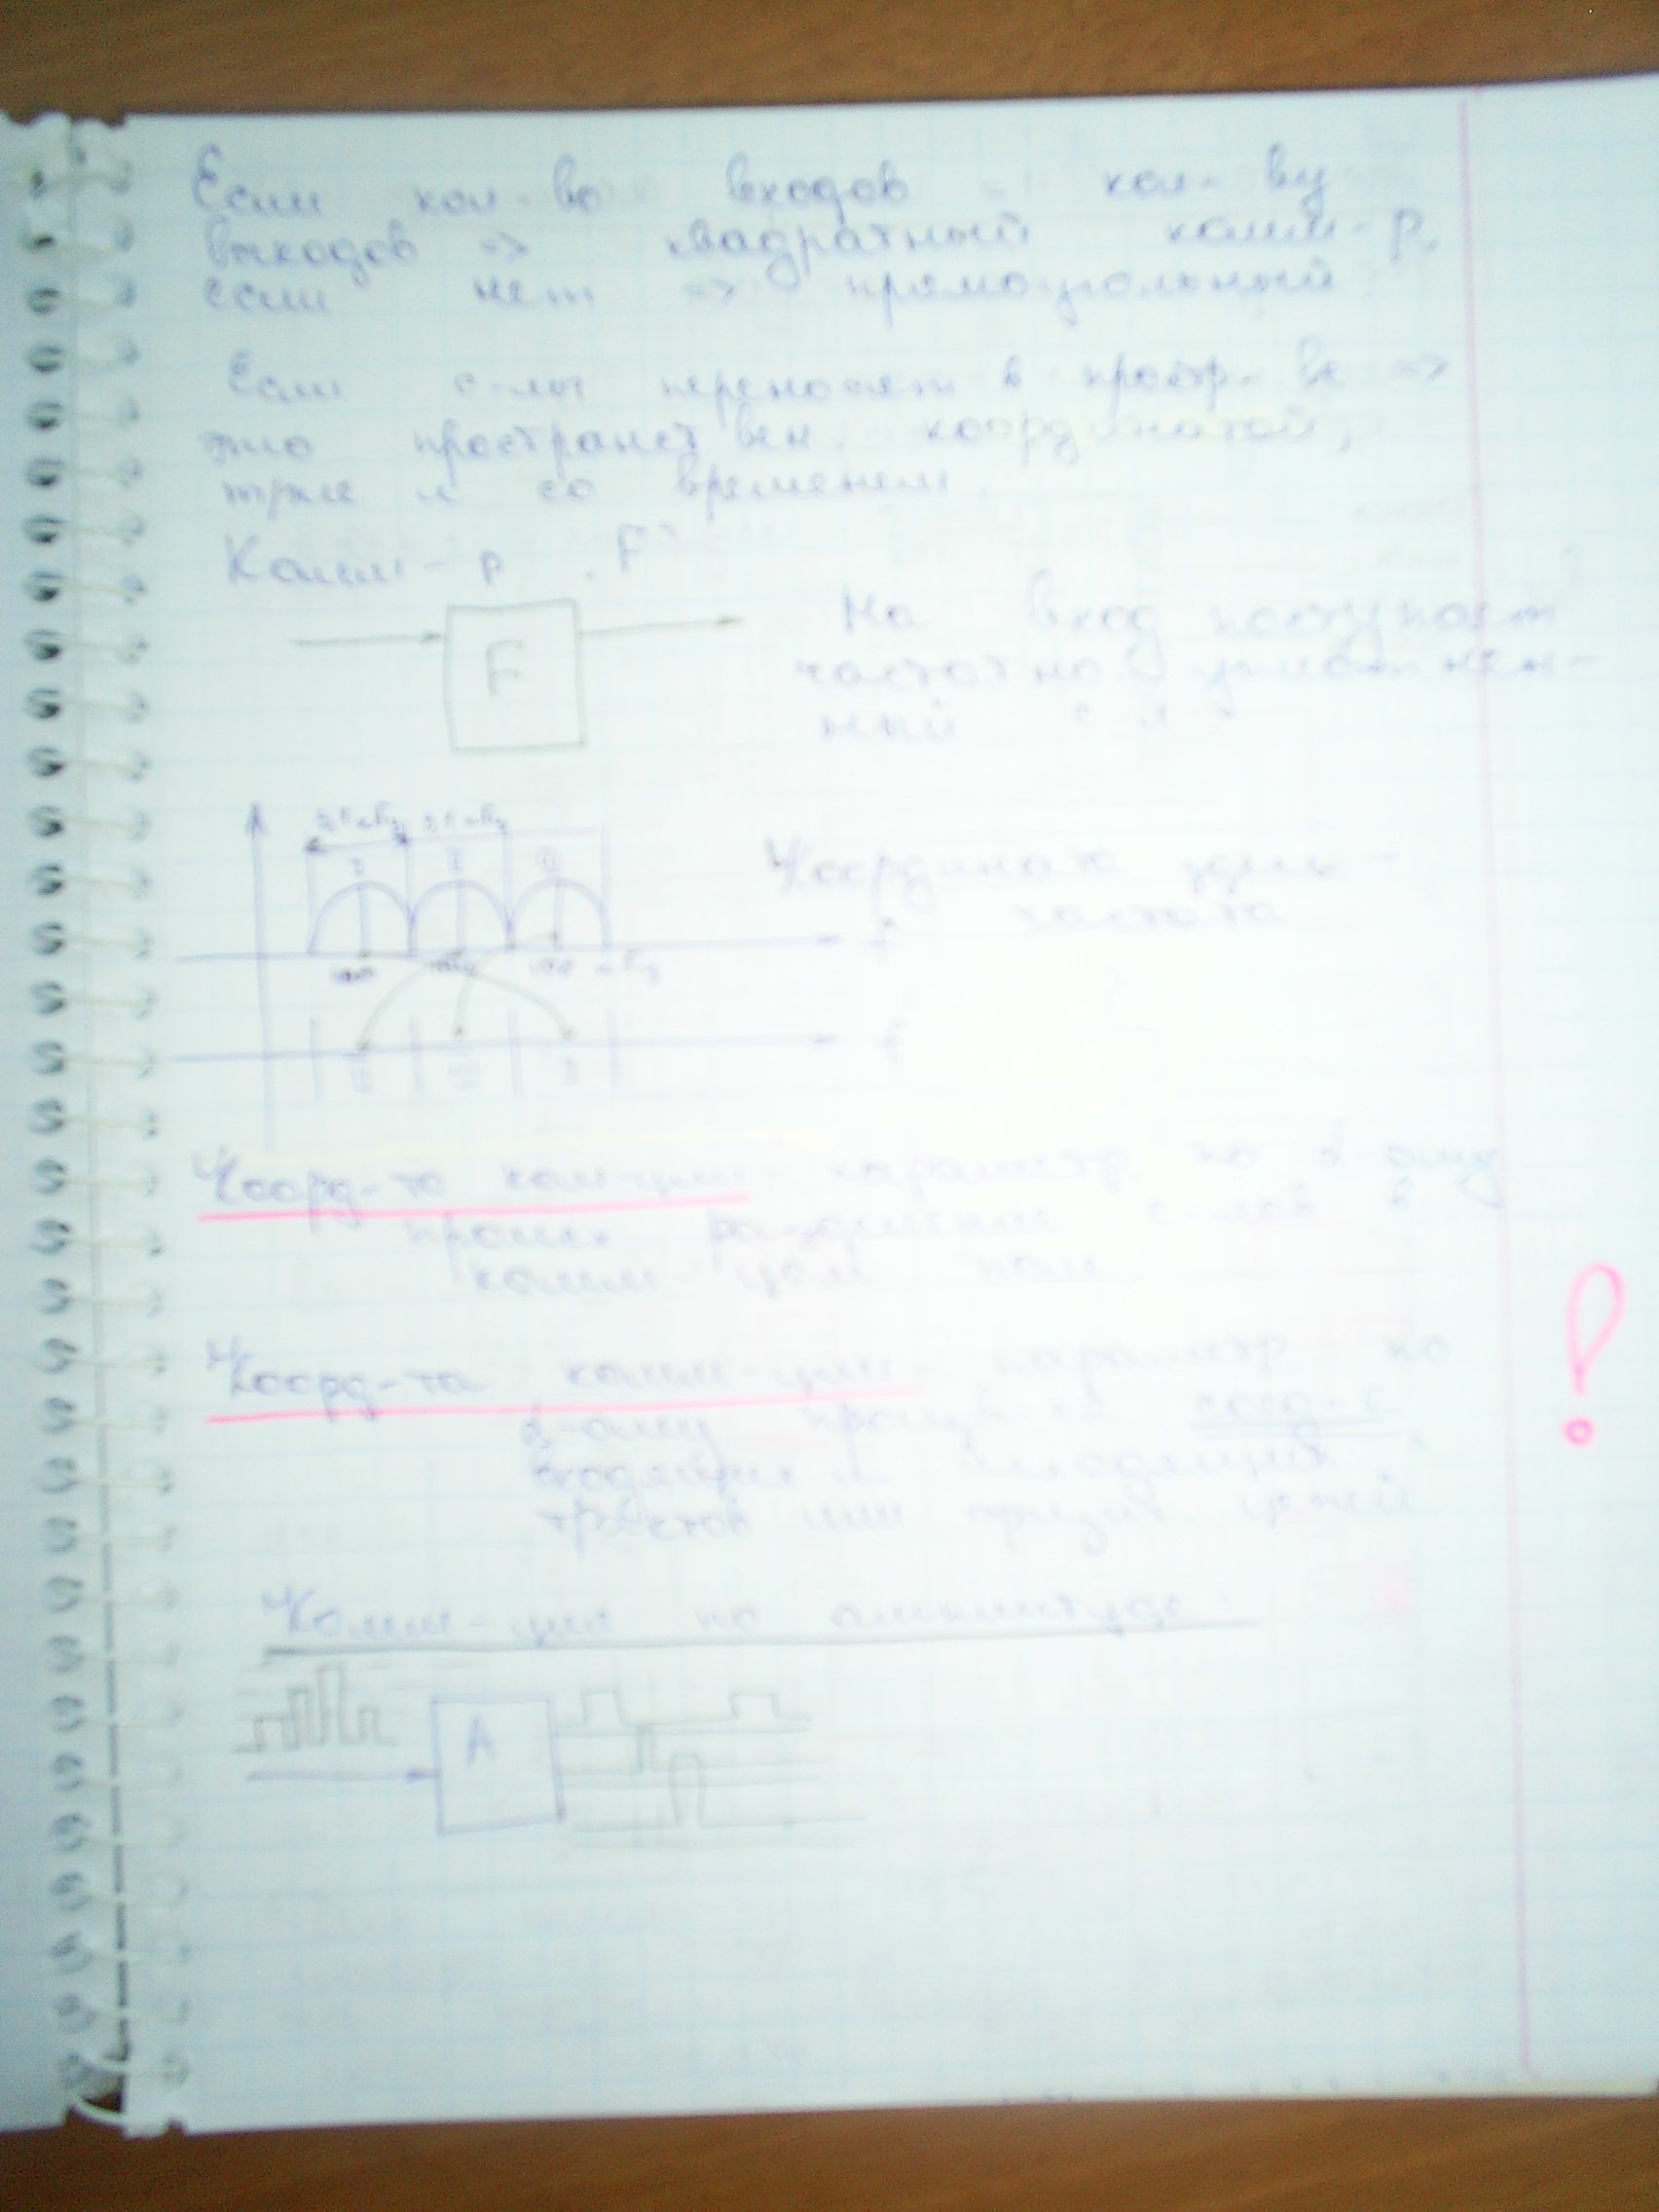 Если кол-во входов = кол-ву
выходов => квадратный комм-р,
если нет => прямоугольный
Если с-лы переносят в простр-ве =>
это пространствен. координатой,
тоже и со временем
Комм-р "F"
F
На вход поступает
частотно уплотнен-
ный с-л
I II III
Координата здесь -
частота
f
кГц
f
I
Коорд-та ком-ции - параметр, по к-ому
происх разделение с-лов в
комм-цом поле
Коорд-та комм-ции параметр по
к-ому соед-е
входящих и исходящих
трактов или цепей.
Комм-ция по амплитуде
A